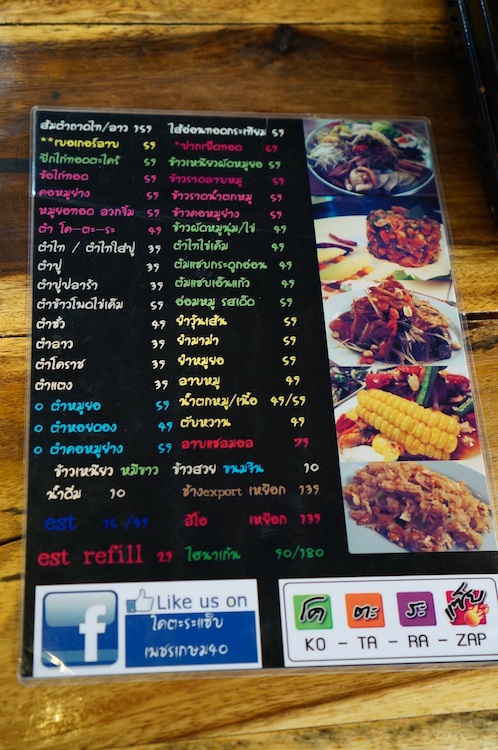 ส้มตำถาดไท/ลาว 159
**เบอเกอร์ลาบ 59
ปีกไก่ทอดตะไคร้ 59
ข้อไก่ทอด 59
คอหมูย่าง 59
หมูยอทอด ลวกจิ้ม 59
ตำ โค-ตะ-ระ 49
ตำไท / ตำไทใส่ปู 39
ตำปู 39
ตำปูปลาร้า 39
ตำข้าวโพดไข่เค็ม 59
ตำซั่ว 49
ตำลาว 39
ตำโคราช 39
ตำแตง 39
o ตำหมูยอ 59
o ตำหอยดอง 49
o ตำคอหมูย่าง 59
ไส้อ่อนทอดกระเทียม 59
*ปากเป็ดทอด 59
ข้าวเหนียวผัดหมูยอ 59
ข้าวราดลาบหมู 59
ข้าวราดน้ำตกหมู 59
ข้าวคอหมูย่าง 59
ข้าวผัดหมูนุ่ม/ไข่ 49
ตำไทไข่เค็ม 49
ต้มแซบกระดูกอ่อน 49
ต้มแซบเอ็นแก้ว 49
อ่อมหมู รสเด็ด 59
ยำวุ้นเส้น 59
ยำมาม่า 59
ยำหมูยอ 59
ลาบหมู 49
น้ำตกหมู/เนื้อ 49/59
ตับหวาน 49
ลาบแซลมอล 79
ข้าวเหนียว หมี่ขาว ข้าวสวย ขนมจีน 10
น้ำดื่ม 10 ช้างexport เหยือก 139
est 15 /49 ลีโอ เหยือก 139
est refill 29 ไฮนาเก้น 90/180
Like us on
f
โคตะระแซ็บ
เพชรเกษม40
โค ตะ ระ แซ็บ
KO - TA - RA - ZAP